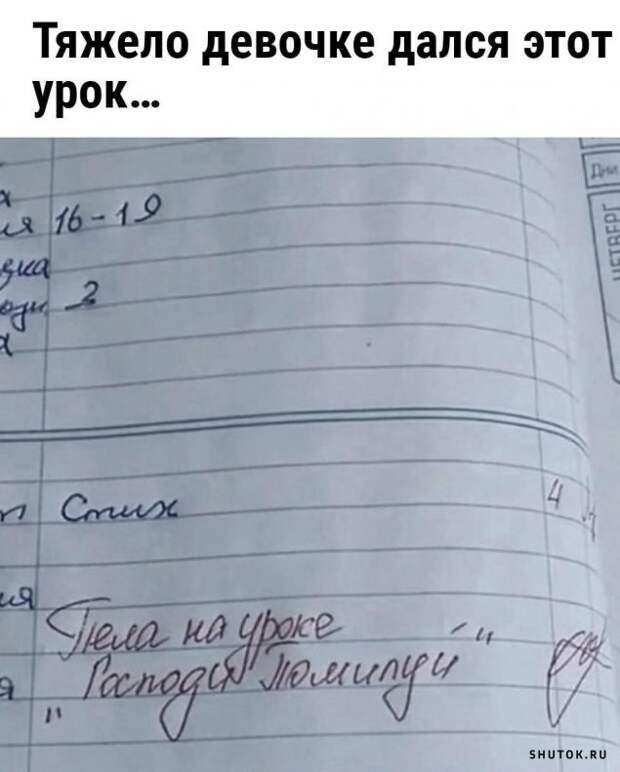 Тяжело девочке дался этот
урок...
Дни
ЧЕТВЕРГ
16-19
2
Стих
4
Пела на уроке
"Господи Помилуй"
SHUTOK.RU